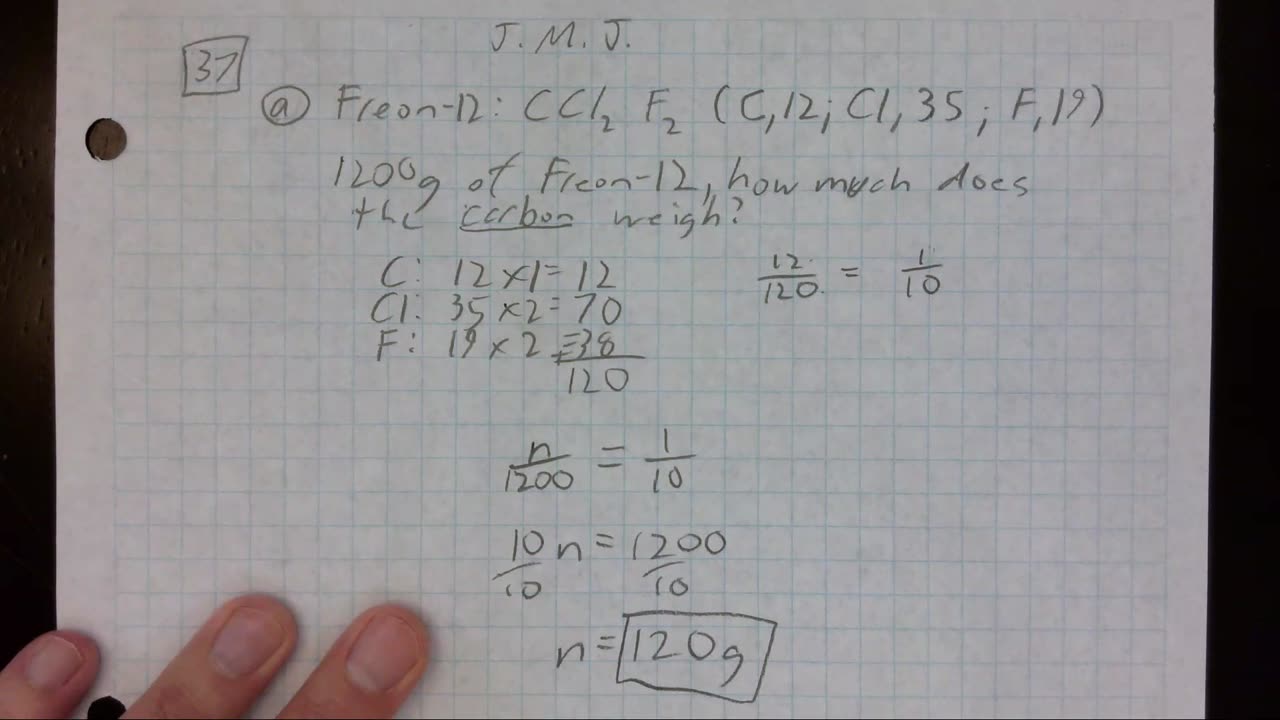 J. M. J.
37
ⓐ Freon-12: CCl₂ F₂ (C,12; Cl,35; F,19)
1200g of Freon-12, how much does
the carbon weigh?
C: 12 ×1= 12
12/120 = 1/10
Cl: 35 ×2= 70
F: 19 × 2 = 38
120
n/1200 = 1/10
10n/10 = 1200/10
n = 120g